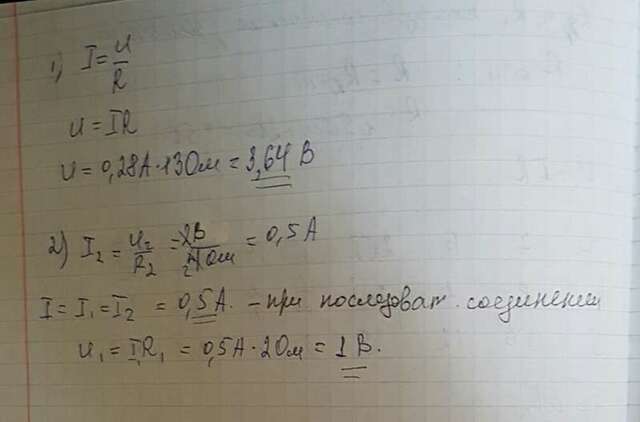 1) I = U/R
U = IR
U = 0,28A · 13Ом = 3,64 В
2) I₂ = U₂/R₂ = 2В/4Ом = 0,5 A
I = I₁ = I₂ = 0,5 A. – при последоват. соединении
U₁ = I₁R₁ = 0,5A · 2Ом = 1 В.